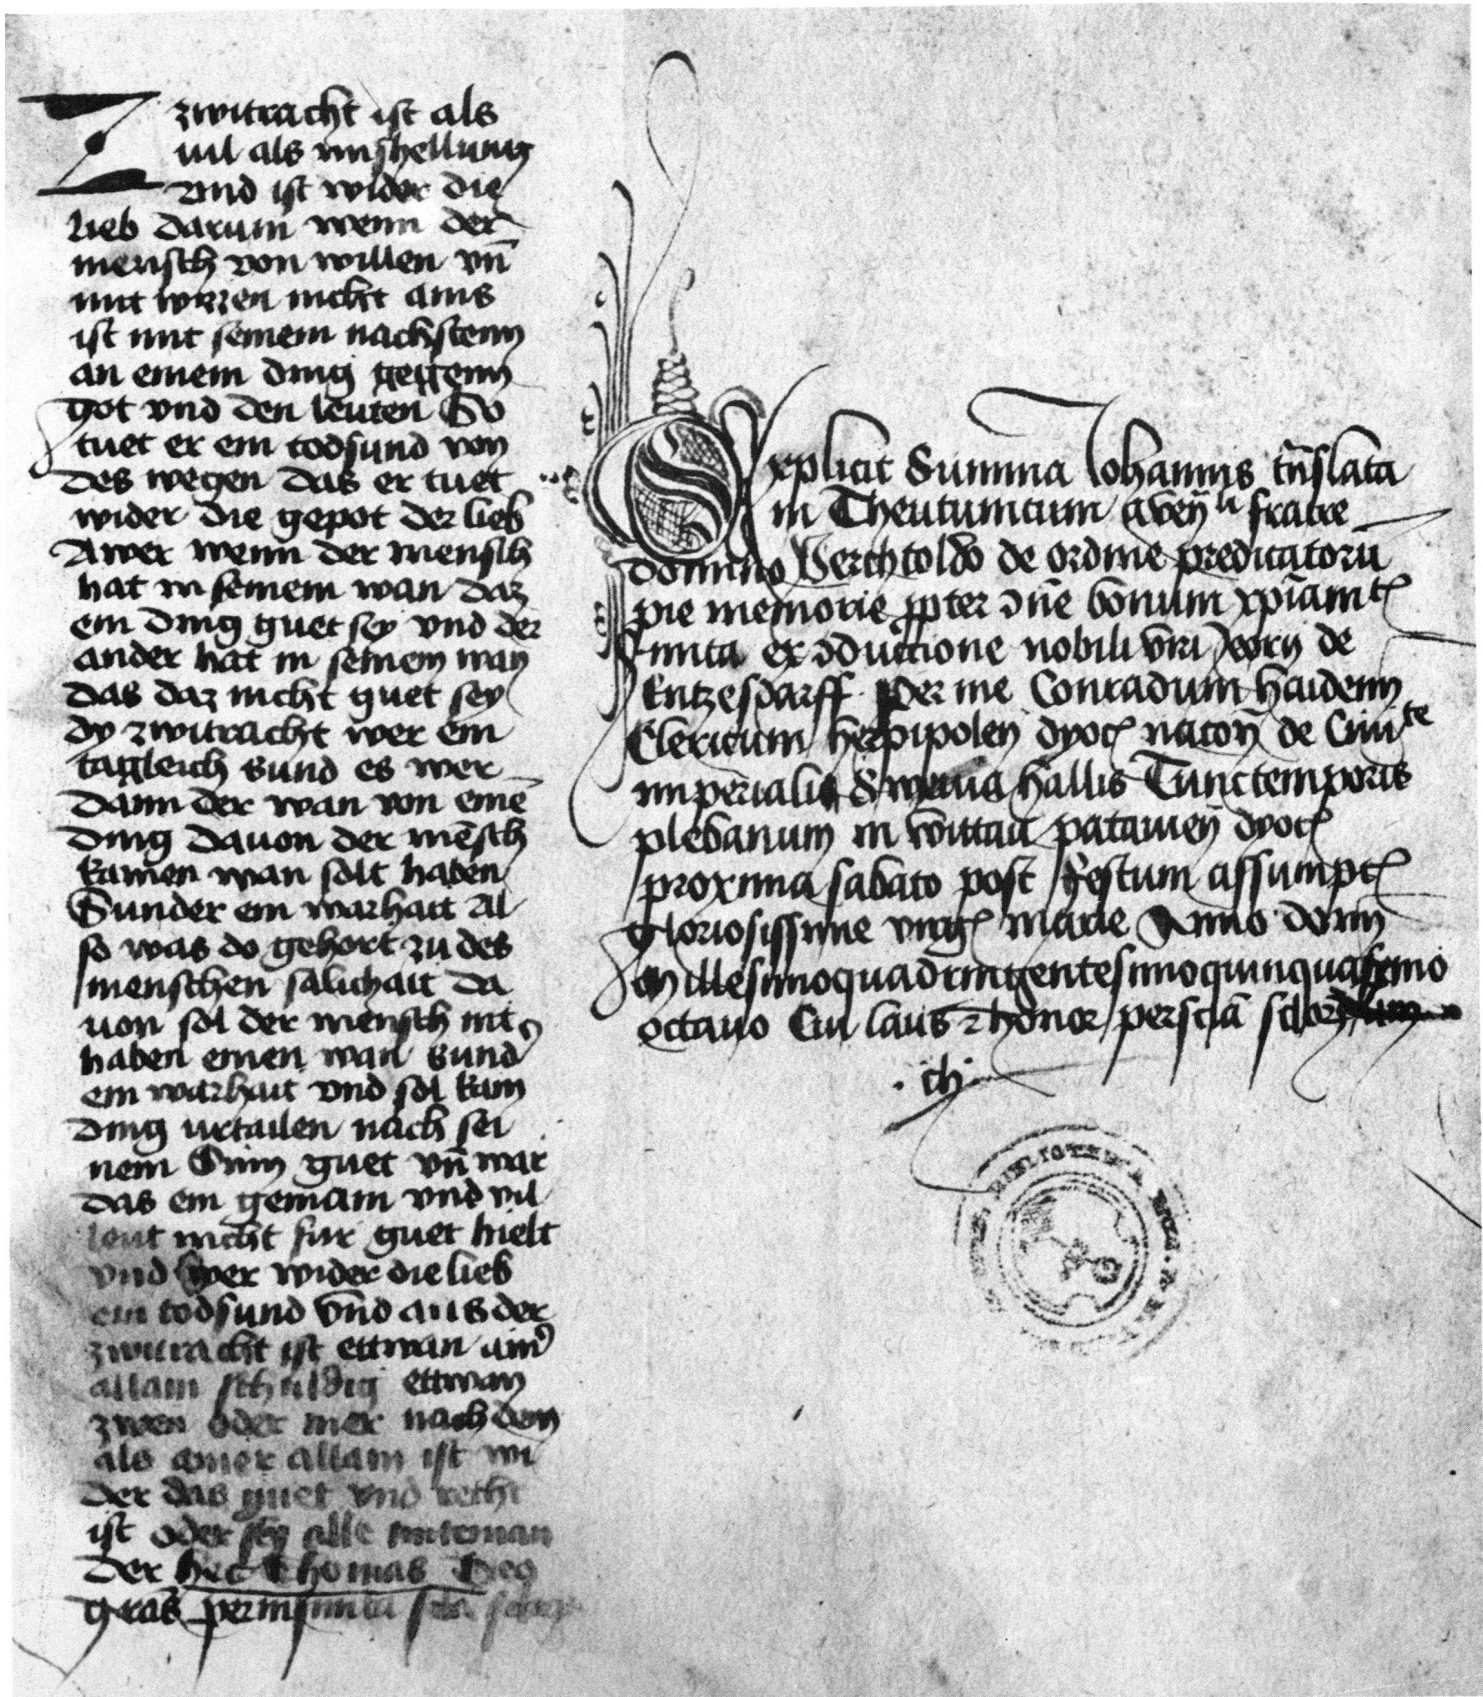 Zzwitracht ist als
uil als mishellung
vnd ist wider die
lieb darum wenn der
mensch von willen vn̄
mit wizzen nicht ains
ist mit seinem nachstenn
an einem ding gegenn
got vnd den leuten So
tuet er ein todsund von
des wegen das er tuet
wider die gepot der lieb
Awer wenn der mensch
hat in seinem wan daz
ein ding guet sey vnd der
ander hat in seinem wan
das daz nicht guet sey
dy zwitracht wer ein
tagleich sund es wer
dann der wan von eine̅
ding dauon der me̅sch
kainen wan solt haben
Sunder ein warhait Al
so was do gehort zu des
menschen salichait da
uon sol der mensch nit
haben einen wan sund̉
ein warhait vnd sol kain
ding urtailen nach sei
nem Sinn guet vn̄ war
das ein gemain vnd vil
leut nicht fur guet hielt
vnd wer wider die lieb
ein todsund vnd aus der
zwitracht ist ettwan ain̉
allain schuldig ettwan
zwen oder mer nach dem
als ainer allain ist wi
der das guet vnd recht
ist oder sy alle miteinan
der hec Thomas Deo
gra̅s
Explicit Summa Johannis tn̄slata
in Theutunicum a ven̄li fratre
domino Berchtoldo de ordine predicatoru̅
pie memorie ꝓpter ɔ̄ne bonum xp̄iam
finita ex ɔductione nobili viri Jeorij de
Entzesdarff per me Conradum haidenn
Clericum herpipolen̄ dyoc̄ nacon̄ de Ciuite
imperialis Sweuia hallis Tunc temporis
plebanum in wittau patauien̄ dyoc̄
proxima sabato post festum assumpc̄
gloriosissime virḡ marie Anno domi
Millesimoquadringentesimoquinquagesimo
octauo Cui laus ⁊ honor per
. ch .
BIBLIOTHECA